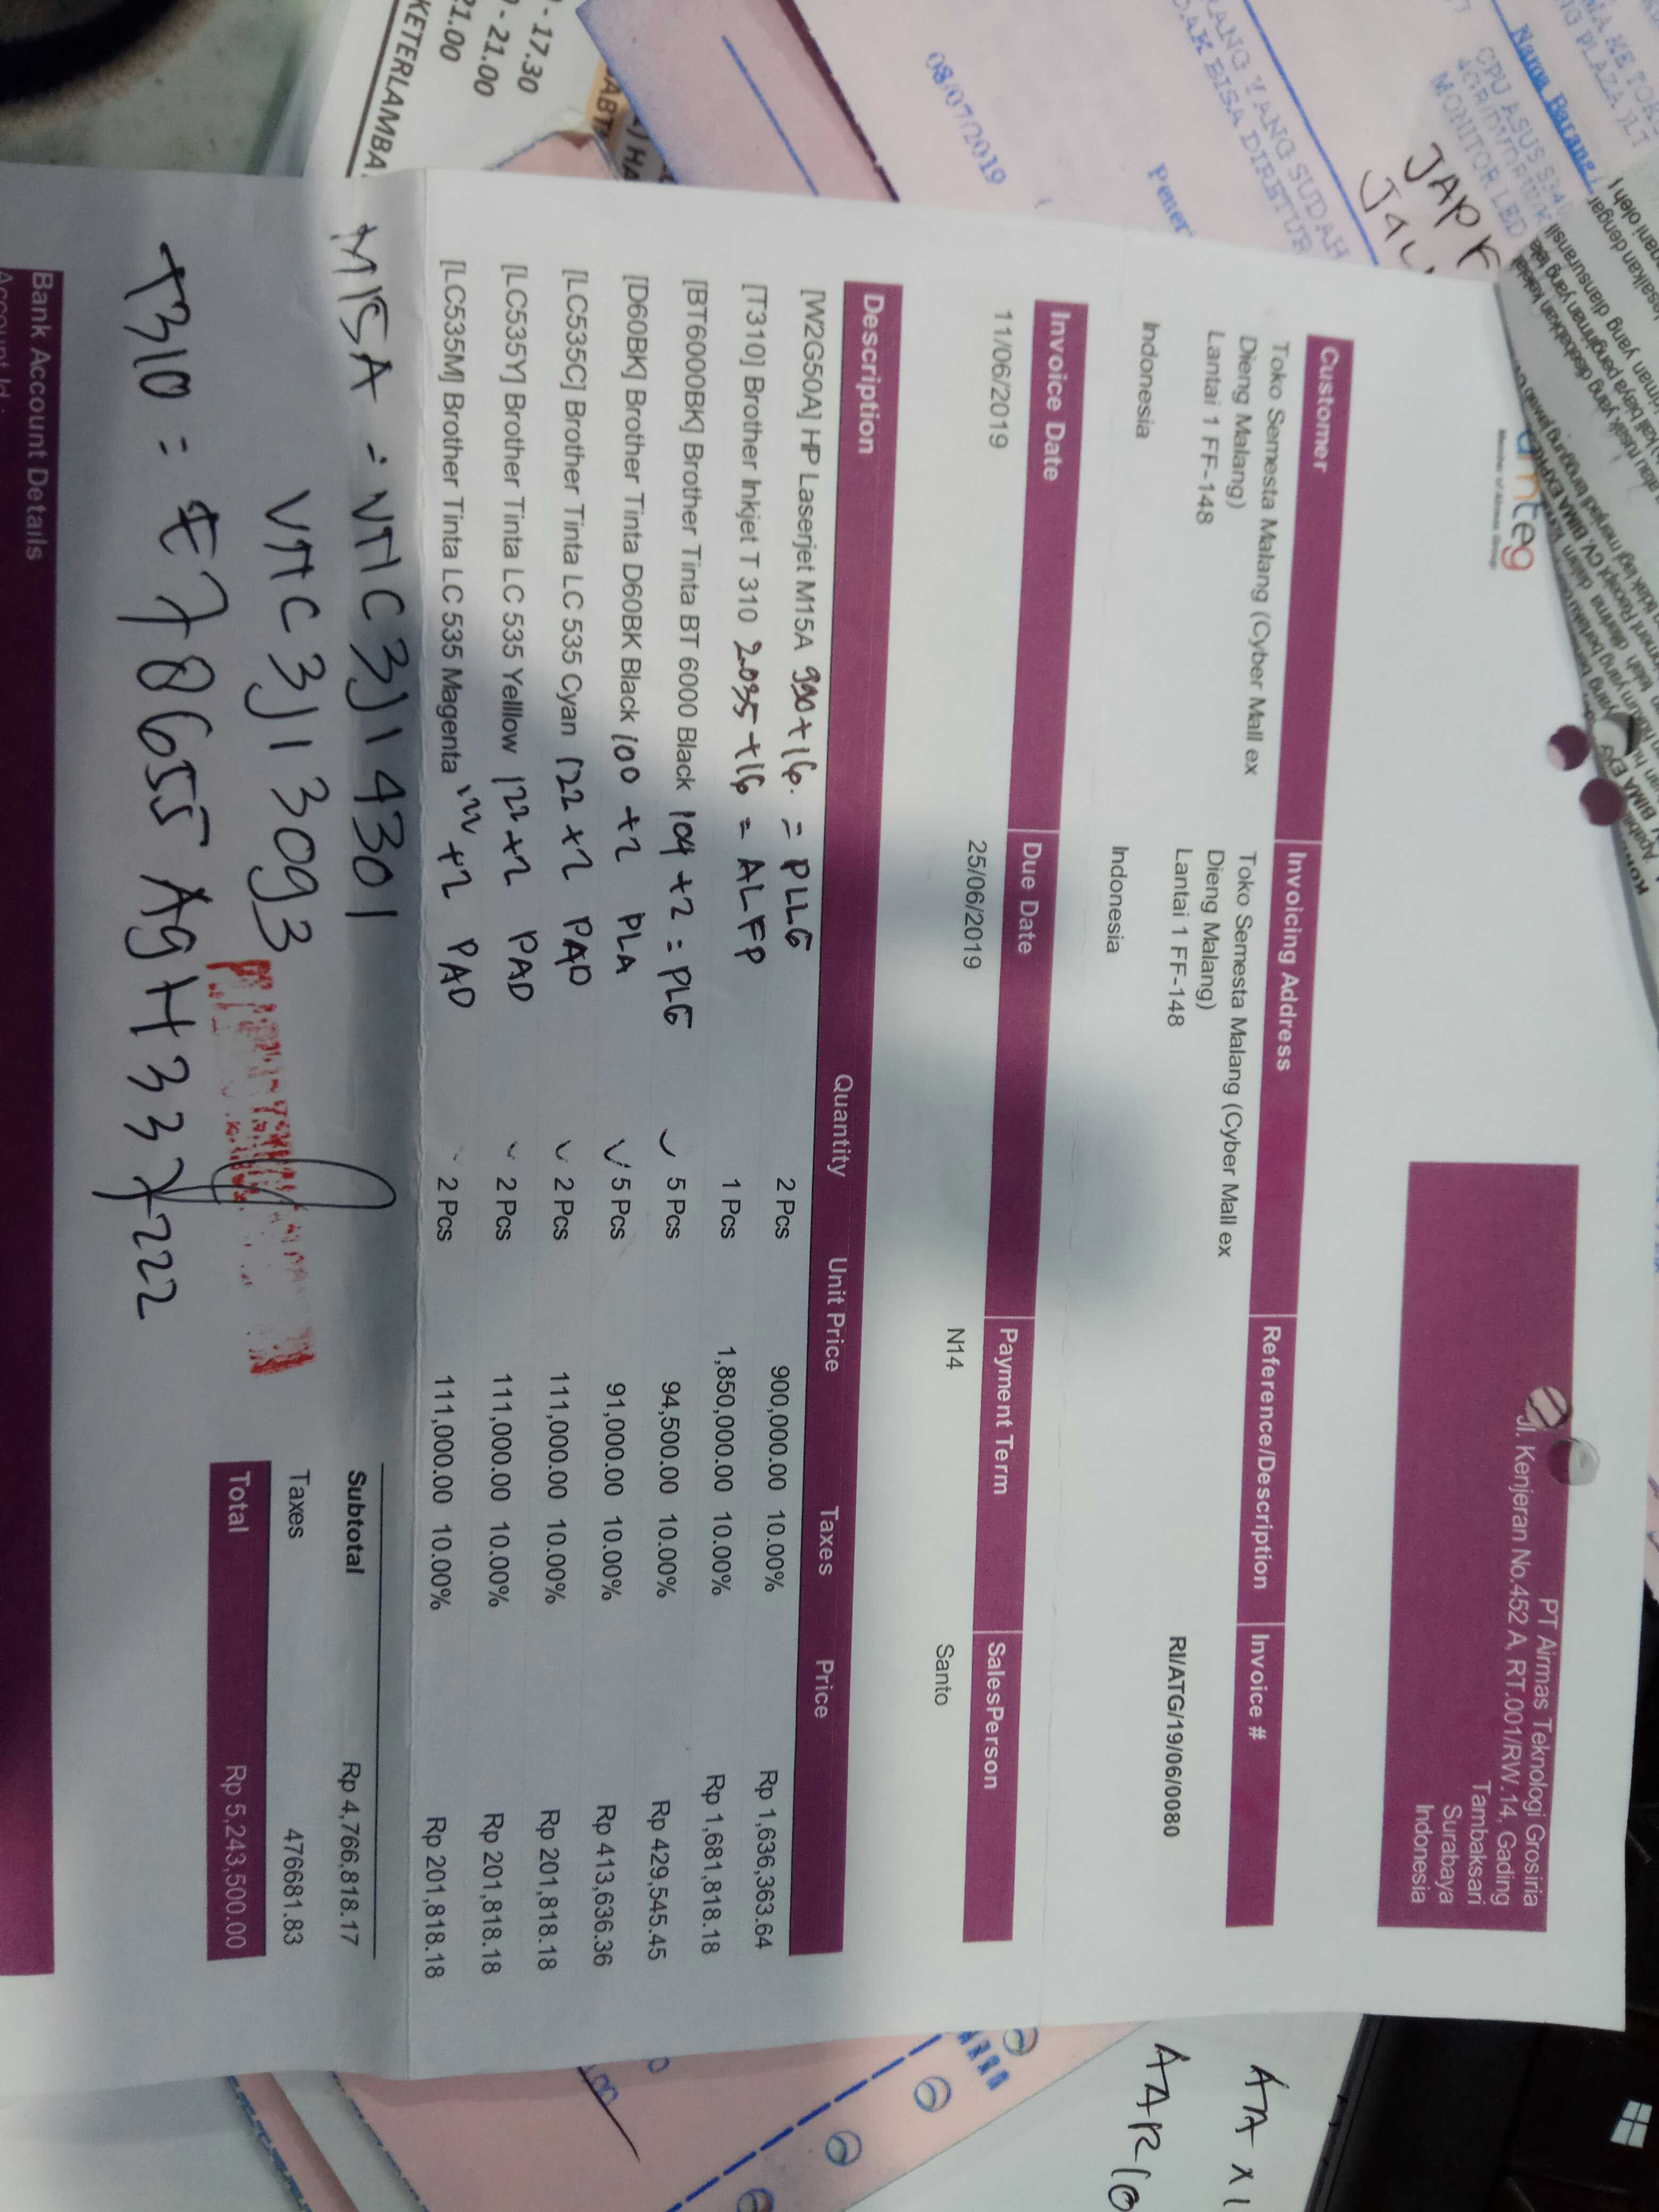 PT Airmas Teknologi Grosiria
Jl. Kenjeran No.452 A, RT.001/RW.14, Gading
Tambaksari
Surabaya
Indonesia
Customer Invoicing Address Reference/Description Invoice #
Toko Semesta Malang (Cyber Mall ex Toko Semesta Malang (Cyber Mall ex RI/ATG/19/06/0080
Dieng Malang) Dieng Malang)
Lantai 1 FF-148 Lantai 1 FF-148
Indonesia Indonesia
Invoice Date Due Date Payment Term SalesPerson
11/06/2019 25/06/2019 N14 Santo
Description Quantity Unit Price Taxes Price
[W2G50A] HP Laserjet M15A 990+16. = PLLG 2 Pcs 900,000.00 10.00% Rp 1,636,363.64
[T310] Brother Inkjet T 310 2.035+16 = ALFP 1 Pcs 1,850,000.00 10.00% Rp 1,681,818.18
[BT6000BK] Brother Tinta BT 6000 Black 104 +2 = PLG 5 Pcs 94,500.00 10.00% Rp 429,545.45
[D60BK] Brother Tinta D60BK Black 100 +2 PLA 5 Pcs 91,000.00 10.00% Rp 413,636.36
[LC535C] Brother Tinta LC 535 Cyan 122 +2 PAD 2 Pcs 111,000.00 10.00% Rp 201,818.18
[LC535Y] Brother Tinta LC 535 Yelllow 122 +2 PAD 2 Pcs 111,000.00 10.00% Rp 201,818.18
[LC535M] Brother Tinta LC 535 Magenta 122 +2 PAD 2 Pcs 111,000.00 10.00% Rp 201,818.18
Subtotal Rp 4,766,818.17
Taxes 476681.83
Total Rp 5,243,500.00
M15A = VNC3J14301
VNC3J13093
T310 = E78655
Bank Account Details
08/07/2019
RANG YANG SUDAH
DAK BISA DIRETUR
Nama Barang
CPU ASUS
MONITOR LED
- 17.30
- 21.00
21.00
KETERLAMBA
AA x1
AAR10